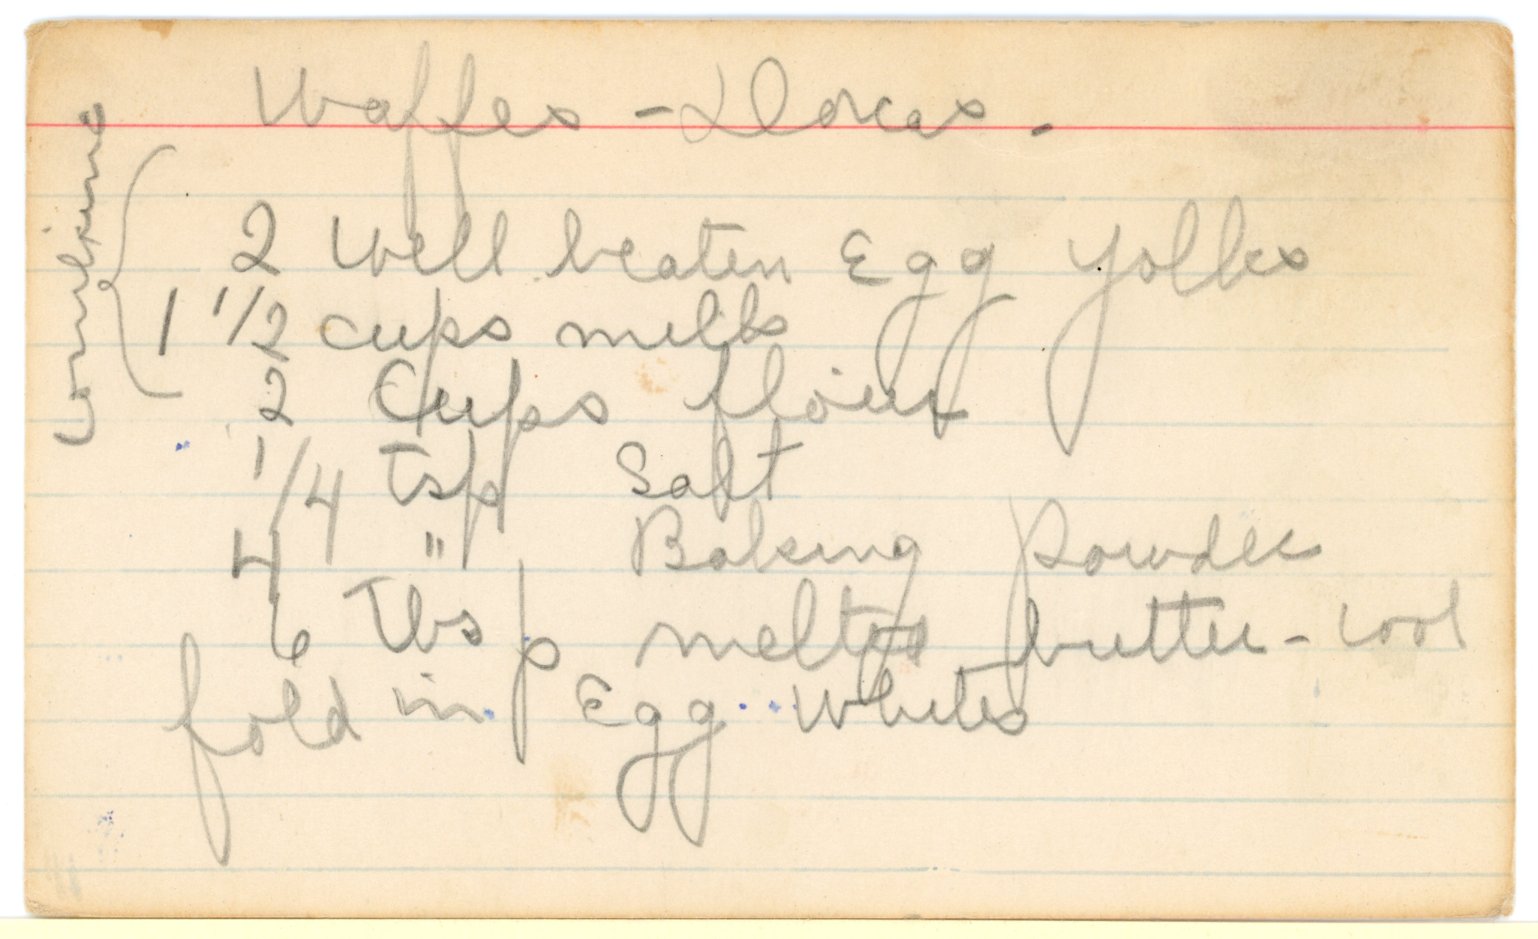 Waffes - Dorcas.
combine
2 Well beaten Egg Yolks
1 1/2 cups milk
2 Cups flour
1/4 Tsp Salt
4 " Baking Powder
6 Tbsp melted butter - cool
fold in Egg Whites